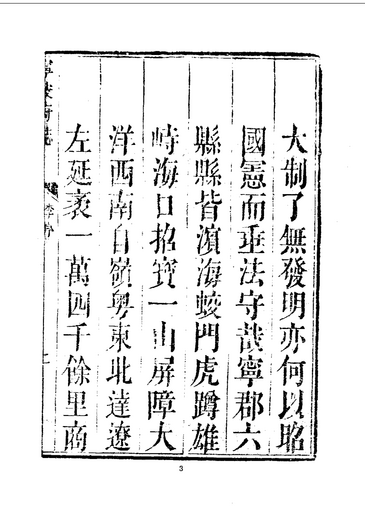 大制了無發明亦何以昭
國憲而垂法守哉寧郡六
縣縣皆濵海蛟門虎蹲雄
峙海口招寶一山屏障大
洋西南自嶺粤東北達遼
左延袤一萬四千餘里商
寧波府志
3